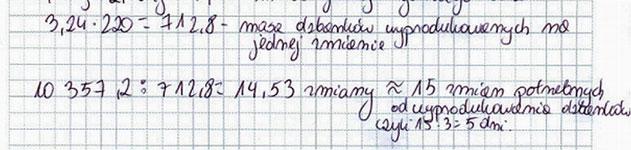 3,24 · 220 = 712,8 - masa dzbanków wyprodukowanych na
jednej zmianie
10 357,2 : 712,8 = 14,53 zmiany ≈ 15 zmian potrzebnych
do wyprodukowania dzbanków
czyli 15 : 3 = 5 dni.